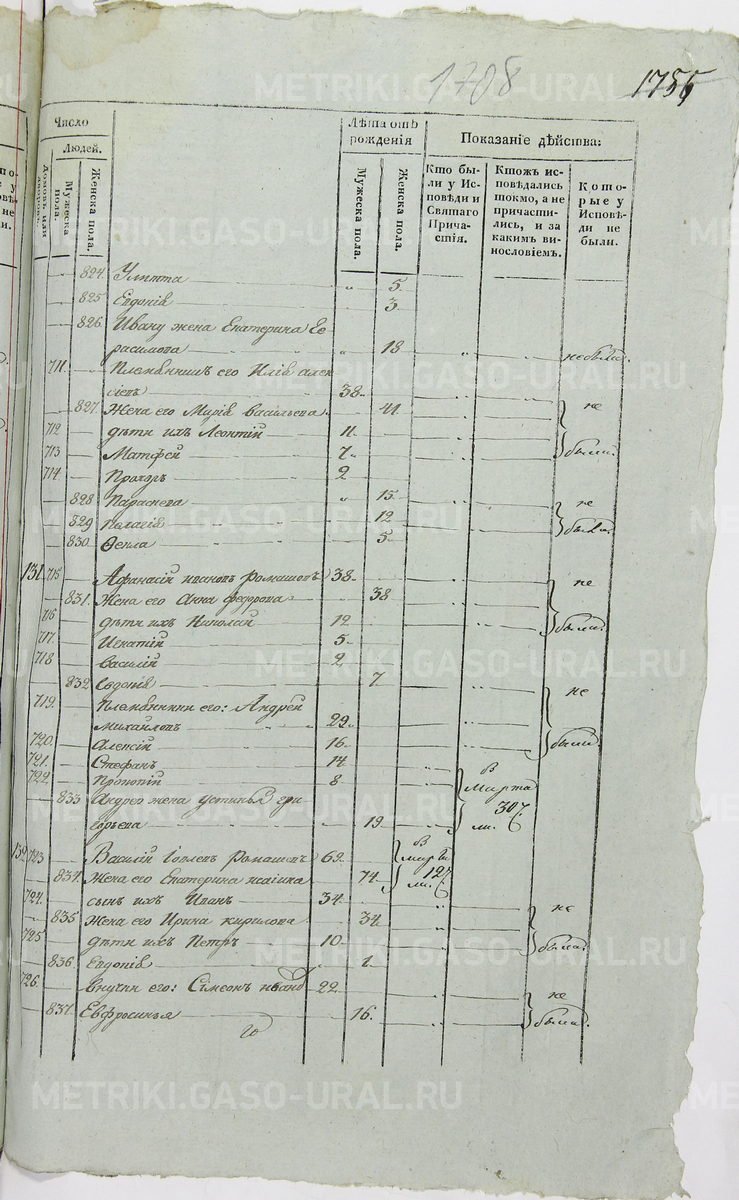 1708
1756
Число
Людей.
Домовъ или дворовъ.
Мужеска пола.
Женска пола.
Лѣта отъ рожденія
Мужеска пола.
Женска пола.
Показаніе дѣйства:
Кто были у Исповѣди и Святаго Причастія.
Ктожъ исповѣдались токмо, а не причастились, и за какимъ винословіемъ.
Которые у Исповѣди не были.
824. Улитта 5.
825. Евдокія 3.
826. Ивану жена Екатерина Ге
расимова 18 не были.
711. Племянникъ его Илія алек
сіевъ 38.
827. Жена его Марія васильева 41 не
712 дѣти ихъ Леонтій 11.
713 Матфей 7 были.
714 Прохоръ 2
828 Параскева 15. не
829 Пелагія 12 были.
830. Ѳекла 5.
131. 715 Афанасій ивановъ Ромашовъ 38. не
831. Жена его Анна федорова 38
716 дѣти ихъ Николай 12 были.
717. Игнатій 5.
718 василій 2.
832. Евдокія 7
719. Племянники его: Андрей не
михайловъ 29.
720. Алексій 16. были.
721. Стефанъ 14
722. Прокопій 8 в
833 Андрея жена устинья гри Марта
горьева 19 30 ч.
132 723 Василій Іовлевъ Ромашовъ 69. в
834. Жена его Екатерина исаакова 74. марта 12 ч.
724. сынъ ихъ Иванъ 34.
835. Жена его Ирина кирилова 34. не
725 дѣти ихъ Петръ 10. были.
836. Евдокія 1.
726. внучки его: Симеонъ 22.
не
837. Евфросинья 16. были.